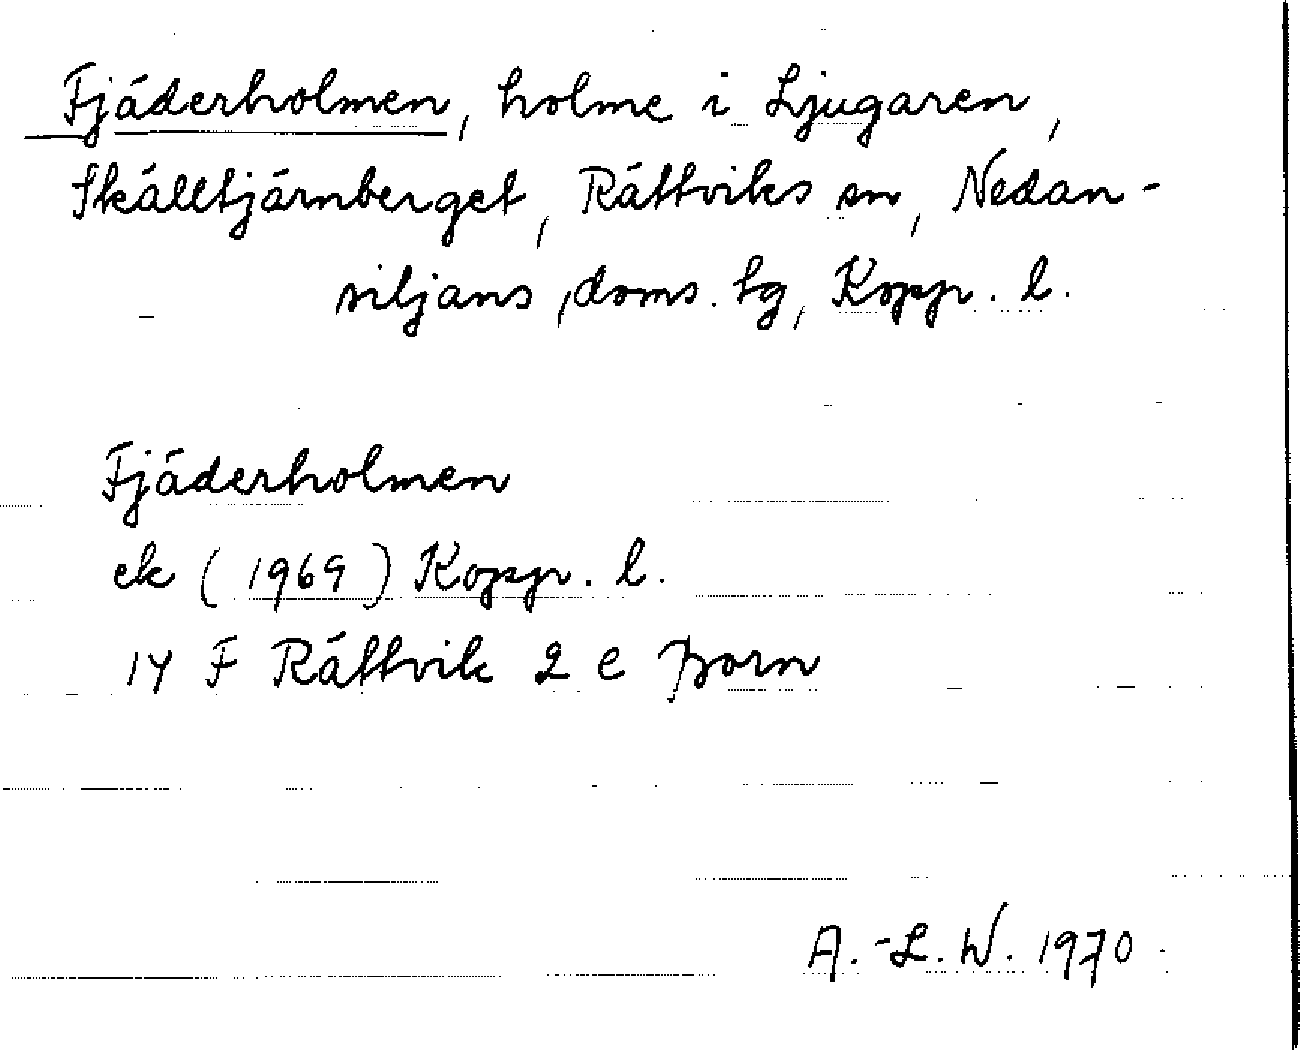 Fjäderholmen, holme i Ljugaren,
Skälltjärnberget, Rättviks sn, Nedan-
siljans, doms. tg, Kopp. l.
Fjäderholmen
ek (1969) Kopp. l.
14 F Rättvik 2 e Born
A.-L. W. 1970